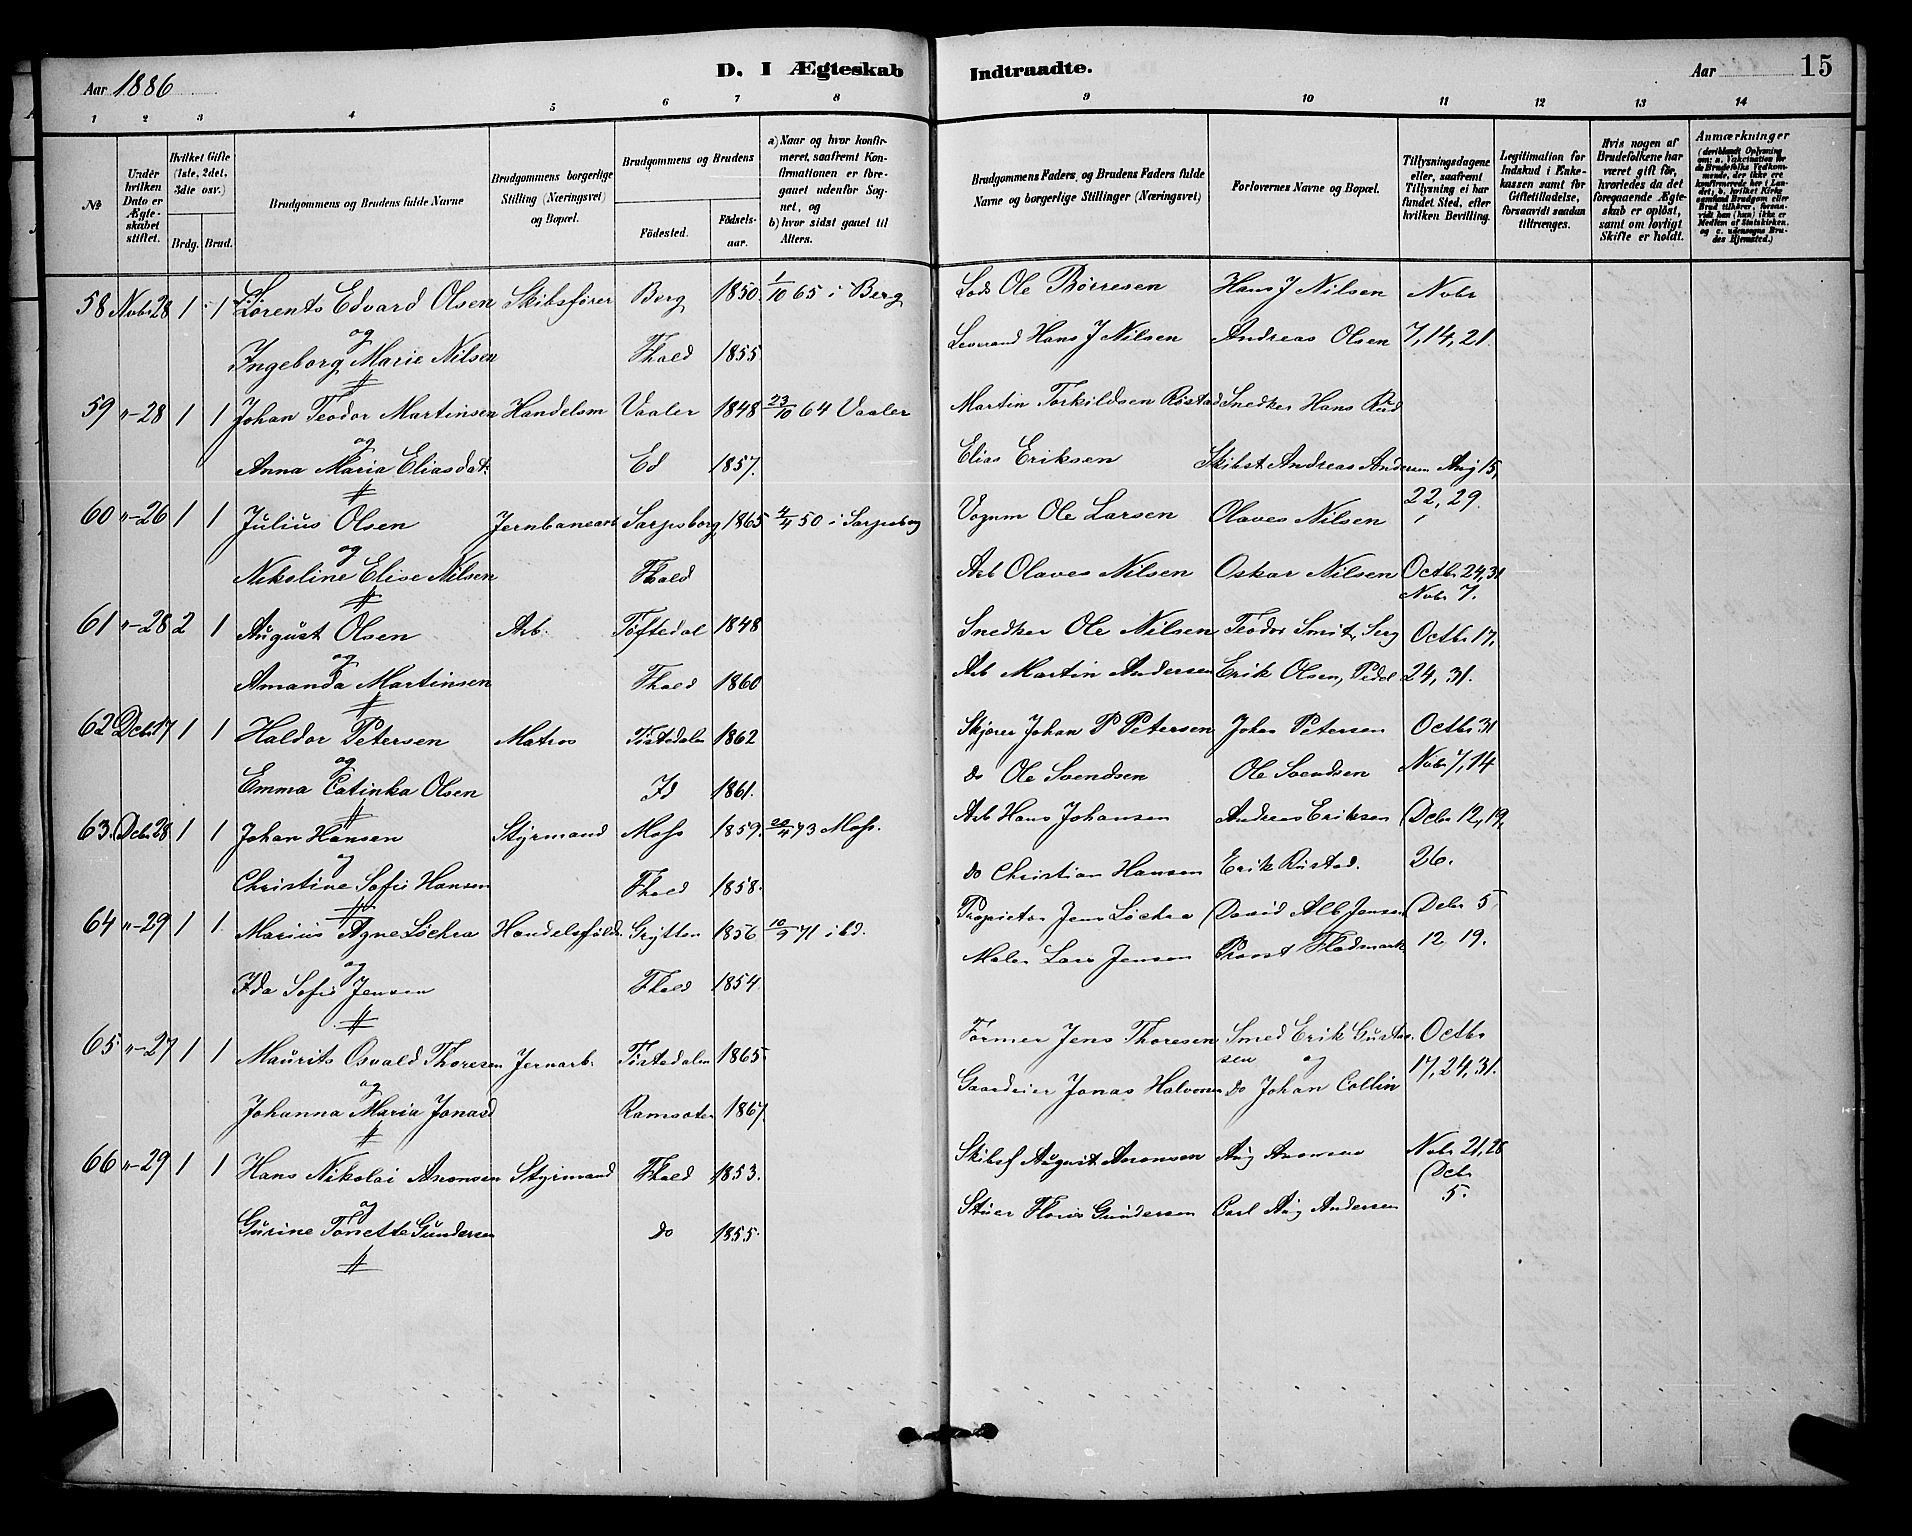 Aar 1886
D. I Ægteskab
Indtraadte.
Aar 15
1 2 3 4 5 6 7 8 9 10 11 12 13 14
№
Under hvilken Dato er Ægteskabet stiftet.
Hvilket Gifte (1ste, 2det, 3die osv.)
Brdg. Brud.
Brudgommens og Brudens fulde Navne
Brudgommens borgerlige Stilling (Næringsvei) og Bopæl.
Brudgommens og Brudens
Födested.
Födselsaar.
a) Naar og hvor konfirmeret, saafremt Konfirmationen er foregaaet udenfor Sognet, og
b) hvor sidst gaaet til Alters.
Brudgommens Faders, og Brudens Faders fulde Navne og borgerlige Stillinger (Næringsvei)
Forlovernes Navne og Bopæl.
Tillysningsdagene eller, saafremt Tillysning ei har fundet Sted, efter hvilken Bevilling.
Legitimation for Indskud i Enkekassen samt for Giftetilladelse, forsaavidt saadan tiltrænges.
Hvis nogen af Brudefolkene har været gift för, hvorledes da det foregaaende Ægteskab er oplöst, samt om lovligt Skifte er holdt.
Anmærkninger
58 Novbr 28 1 1 Lorents Edvard Olsen Skibsfører Berg 1850. 1/10 65 i Berg Lods Ole Børresen Hans J Nilsen Nvbr
og
Ingeborg Marie Nilsen Fhald 1855. Hans J Nilsen Andreas Olsen 7, 14, 21.
59 "-28 1 1 Johan Teodor Martinsen Handelsm Vaaler 1848 23/10 64 Vaaler Martin Torkildsen Røstad Snedker Hans Rød
og
Anna Maria Eliasdat. Ed 1857. Elias Eriksen Skibst Andreas Andersen Aug 15,
22, 29.
60 "-26 1 1 Julius Olsen Jernbanearb Sarpsborg 1865 50 i Sarpsborg Vognm Ole Larsen Olaves Nilsen
og
Nikoline Elise Nilsen Fhald Arb Olaves Nilsen Oskar Nilsen Octbr 24, 31
Nvbr 7.
61 "-28 2 1 August Olsen Arb. Töftedal 1848 Snedker Ole Nilsen Teodor Smit, Serg Octbr 17,
og
Amanda Martinsen Fhald 1860 Arb Martin Andersen Erik Olsen, Pedel 24, 31.
62 Dcbr 17 1 1 Haldor Petersen Matros Tistedalen 1862 Skjærer Johan P Petersen Johan Petersen Octbr 31
og
Emma Catinka Olsen Id 1861. do Ole Svendsen Ole Svendsen Nvbr 7, 14
63. Dcbr 28 1 1 Johan Hansen Styrmand Moss 1859. 73 Moss. Arb Hans Johansen Andreas Eriksen Dcbr 12, 19,
og
Christine Sofie Hansen Fhald 1858. do Christian Hansen Erik Rustad. 26.
64 "-29 1 1 Marius Agne Löchra Grytten 1856 71 ibd. Proprietær Jens Löchra David Alb Jensen Dcbr 5
og
Ida Sofie Jensen Fhald 1854. Maler Lars Jensen Provst Fladmark 12 19.
65 "-27 1 1 Maurits Osvald Thoresen Jernarb. Tistedalen 1865. Former Jens Thoresen Smed Erik Gustav- Octbr
og sen og
Johanna Maria Jonasd Ramsøter 1867. Gaardeier Jonas Halvorsen do Johan Collin 17, 24, 31.
66 "-29 1 1 Hans Nikolai Aronsen Styrmand Fhald 1853. Skibsf August Aronsen Aug Aronsen Nvbr 21, 28
og Dcbr
Gurine Tonette Gundersen do 1855. Stuer Gundersen Carl Aug Andersen 5.